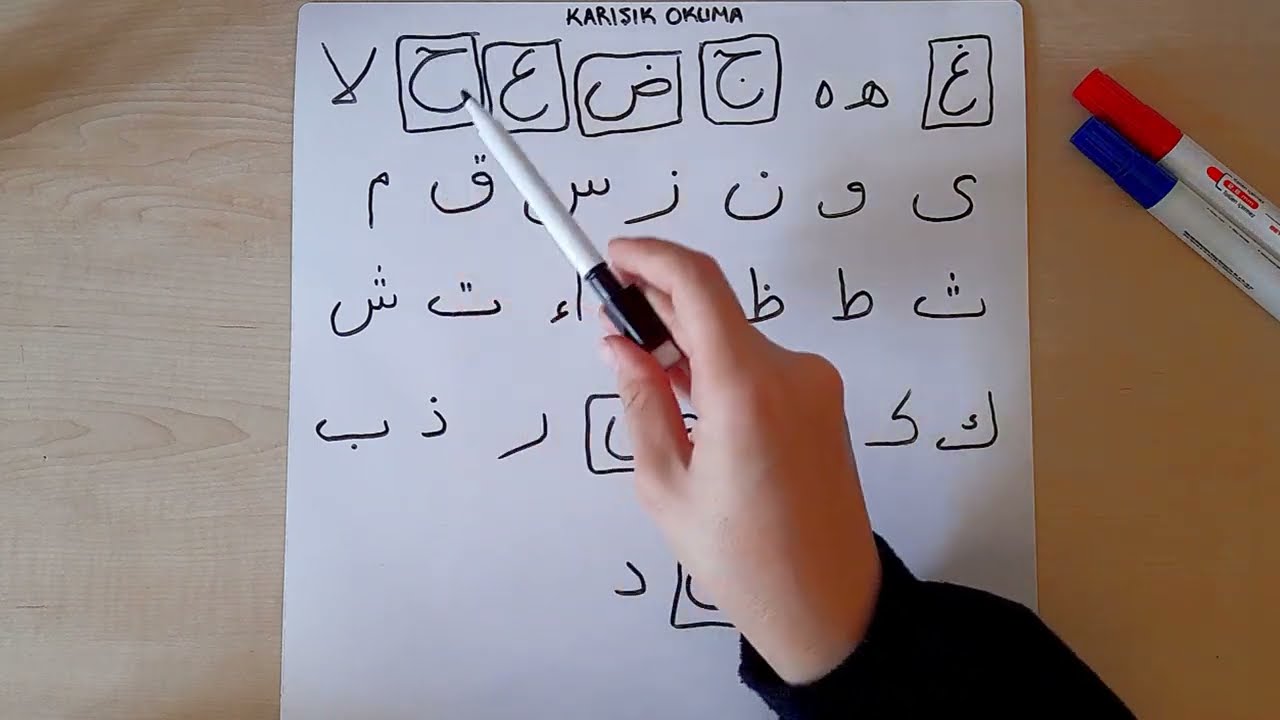 KARIŞIK OKUMA
غ ه ه ج ض ع ح لا
ى و ن ز س ق م
ث ط ظ ا ء ت ش
ك ک ر ذ ب
د